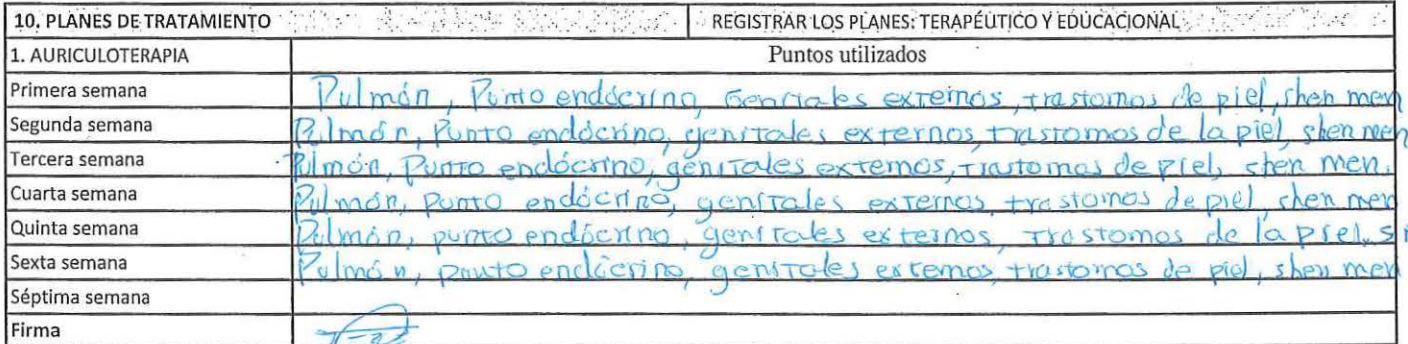 10. PLANES DE TRATAMIENTO REGISTRAR LOS PLANES: TERAPÉUTICO Y EDUCACIONAL
1. AURICULOTERAPIA Puntos utilizados
Primera semana Pulmón, Punto endócrino, Genitales externos, trastornos de piel, shen men
Segunda semana Pulmón, Punto endócrino, genitales externos, trastornos de la piel, shen men
Tercera semana Pulmón, Punto endócrino, genitales externos, trastornos de piel, shen men.
Cuarta semana Pulmón, punto endócrino, genitales externos, trastornos de piel, shen men
Quinta semana Pulmón, punto endócrino, genitales externos, trastornos de la piel, s
Sexta semana Pulmón, punto endócrino, genitales externos, trastornos de piel, shen men
Séptima semana
Firma